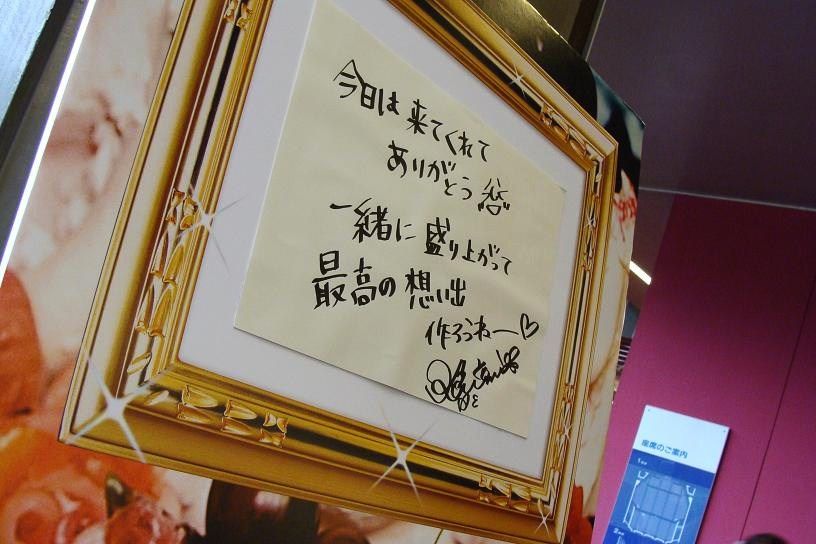 今日は来てくれて
ありがとう
一緒に盛り上がって
最高の想い出
作ろうねー♡
座席のご案内